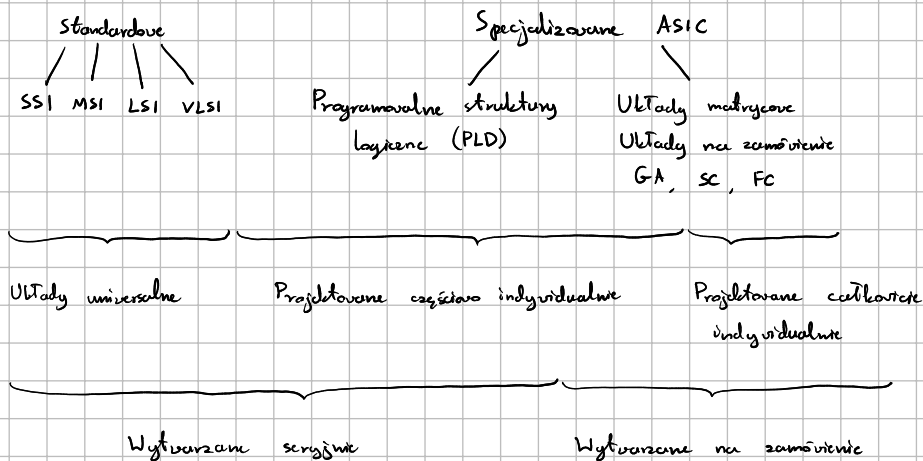 Standardowe
Specjalizowane ASIC
SSI MSI LSI VLSI
Programowalne struktury
logiczne (PLD)
Układy matrycowe
Układy na zamówienie
GA, SC, FC
Układy uniwersalne
Projektowane częściowo indywidualnie
Projektowane całkowicie
indywidualnie
Wytwarzane seryjnie
Wytwarzane na zamówienie